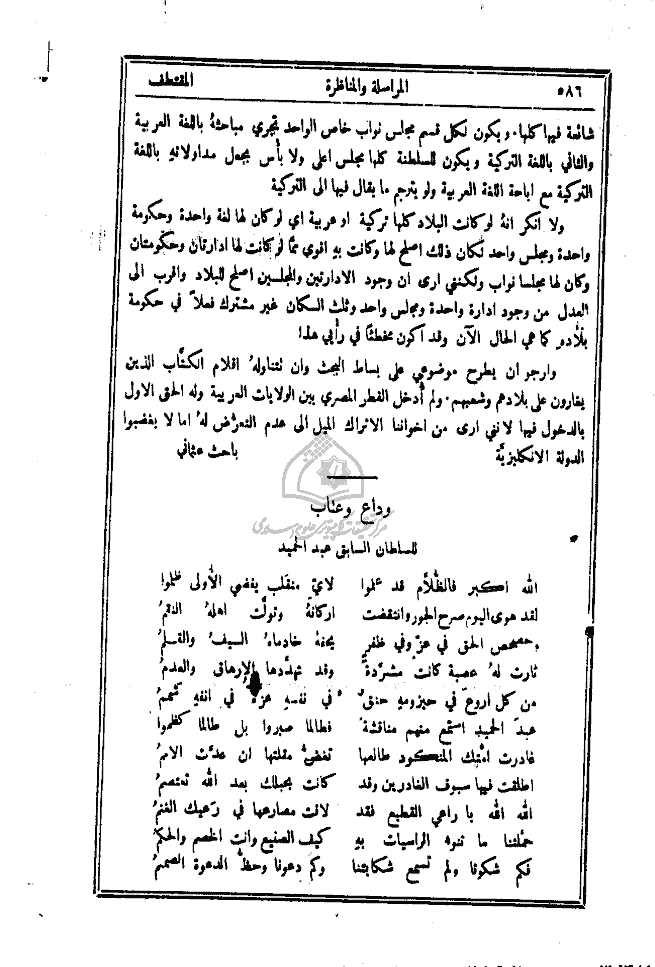 ٥٨٦ المراسلة والمناظرة المقتطف
شائعة فيها كلها. ويكون لكل قسم مجلس نواب خاص الواحد تجري مباحثهُ باللغة العربية
والثاني باللغة التركية ويكون للسلطنة كلها مجلس اعلى ولا بأس بجعل مداولاته باللغة
التركية مع اباحة اللغة العربية ولو يترجم ما يقال فيها الى التركية
ولا انكر انهُ لو كانت البلاد كلها تركية او عربية اي لو كان لها لغة واحدة وحكومة
واحدة ومجلس واحد لكان ذلك اصلح لها وكانت به اقوى ممَّا لو كانت لها ادارتان وحكومتان
وكان لها مجلسا نواب ولكنني ارى ان وجود الادارتين والمجلسين اصلح للبلاد واقرب الى
العدل من وجود ادارة واحدة ومجلس واحد وثلث السكان غير مشترك فعلاً في حكومة
بلادهِ كما هي الحال الآن وقد اكون مخطئاً في رأيي هذا
وارجو ان يطرح موضوعي على بساط البحث وان تتناولهُ اقلام الكتَّاب الذين
يغارون على بلادهم وشعبهم. ولم أُدخل القطر المصري بين الولايات العربية وله الحق الاول
بالدخول فيها لانني ارى من اخواننا الاتراك الميل الى عدم التعرُّض لهُ اما لا يغضبوا
الدولة الانكليزيَّة باحث عثماني
وداع وعتاب
للسلطان السابق عبد الحميد
الله اكبر فالظُلاَّم قد علموا لايّ منقلب يفضي الأُولى ظلموا
لقد هوى اليوم صرح الجور وانتقضت اركانهُ وتولَّت اهلهُ النقمُ
وحصحص الحق في عزّ وفي ظفرٍ يحفهُ خادماهُ السيفُ والقلمُ
ثارت لهُ عصبة كانت مشرَّدةً وقد تهدَّدها الإرهاق والعدمُ
من كل اروع في حيزومهِ حنقٌ في نفسهِ عزَّةٌ في انفهِ شممُ
عبدَ الحميد استمع منهم مناقشةً فطالما صبروا بل طالما كظموا
غادرت امتك المنكود طالعها تغضُّ مقلتها ان عدَّت الاممُ
اطلقت فيها سيوف الغادرين وقد كانت بحبلك بعد الله تعتصمُ
الله الله يا راعي القطيع فقد لاقت مصارعها في رَعيك الغنمُ
حمَّلتنا ما تنوء الراسيات بهِ كيف الصنيع وانت الخصم والحكمُ
فكم شكونا ولم تسمع شكايتنا وكم دعونا وحظُّ الدعوة الصممُ